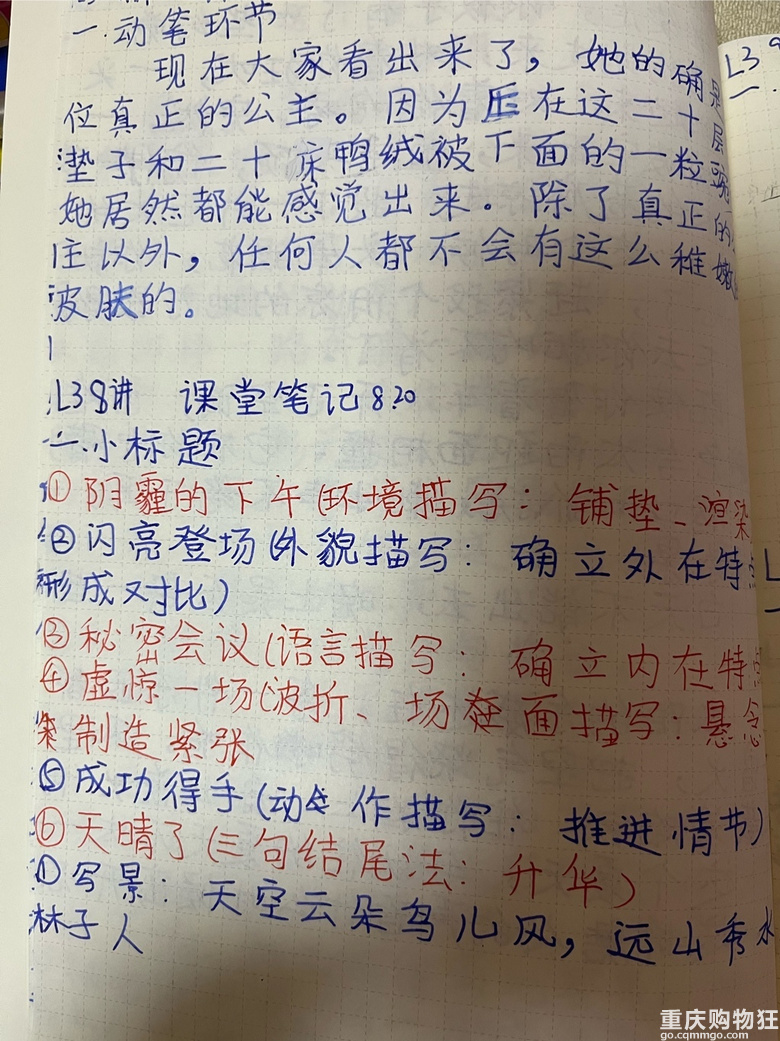 一.动笔环节
现在大家看出来了，她的确是
位真正的公主。因为压在这二十层
垫子和二十床鸭绒被下面的一粒豌
她居然都能感觉出来。除了真正的
主以外，任何人都不会有这么稚嫩
皮肤的。
L38讲 课堂笔记8.20
一.小标题
①阴霾的下午(环境描写：铺垫、渲染
②闪亮登场(外貌描写：确立外在特点
形成对比)
③秘密会议(语言描写：确立内在特点
④虚惊一场(波折、场面描写：悬念
制造紧张
⑤成功得手(动作描写：推进情节)
⑥天晴了(三句结尾法：升华)
①写景：天空云朵鸟儿风，远山秀水
林子人
L39
一.
L
一
重庆购物狂
go.cqmmgo.com